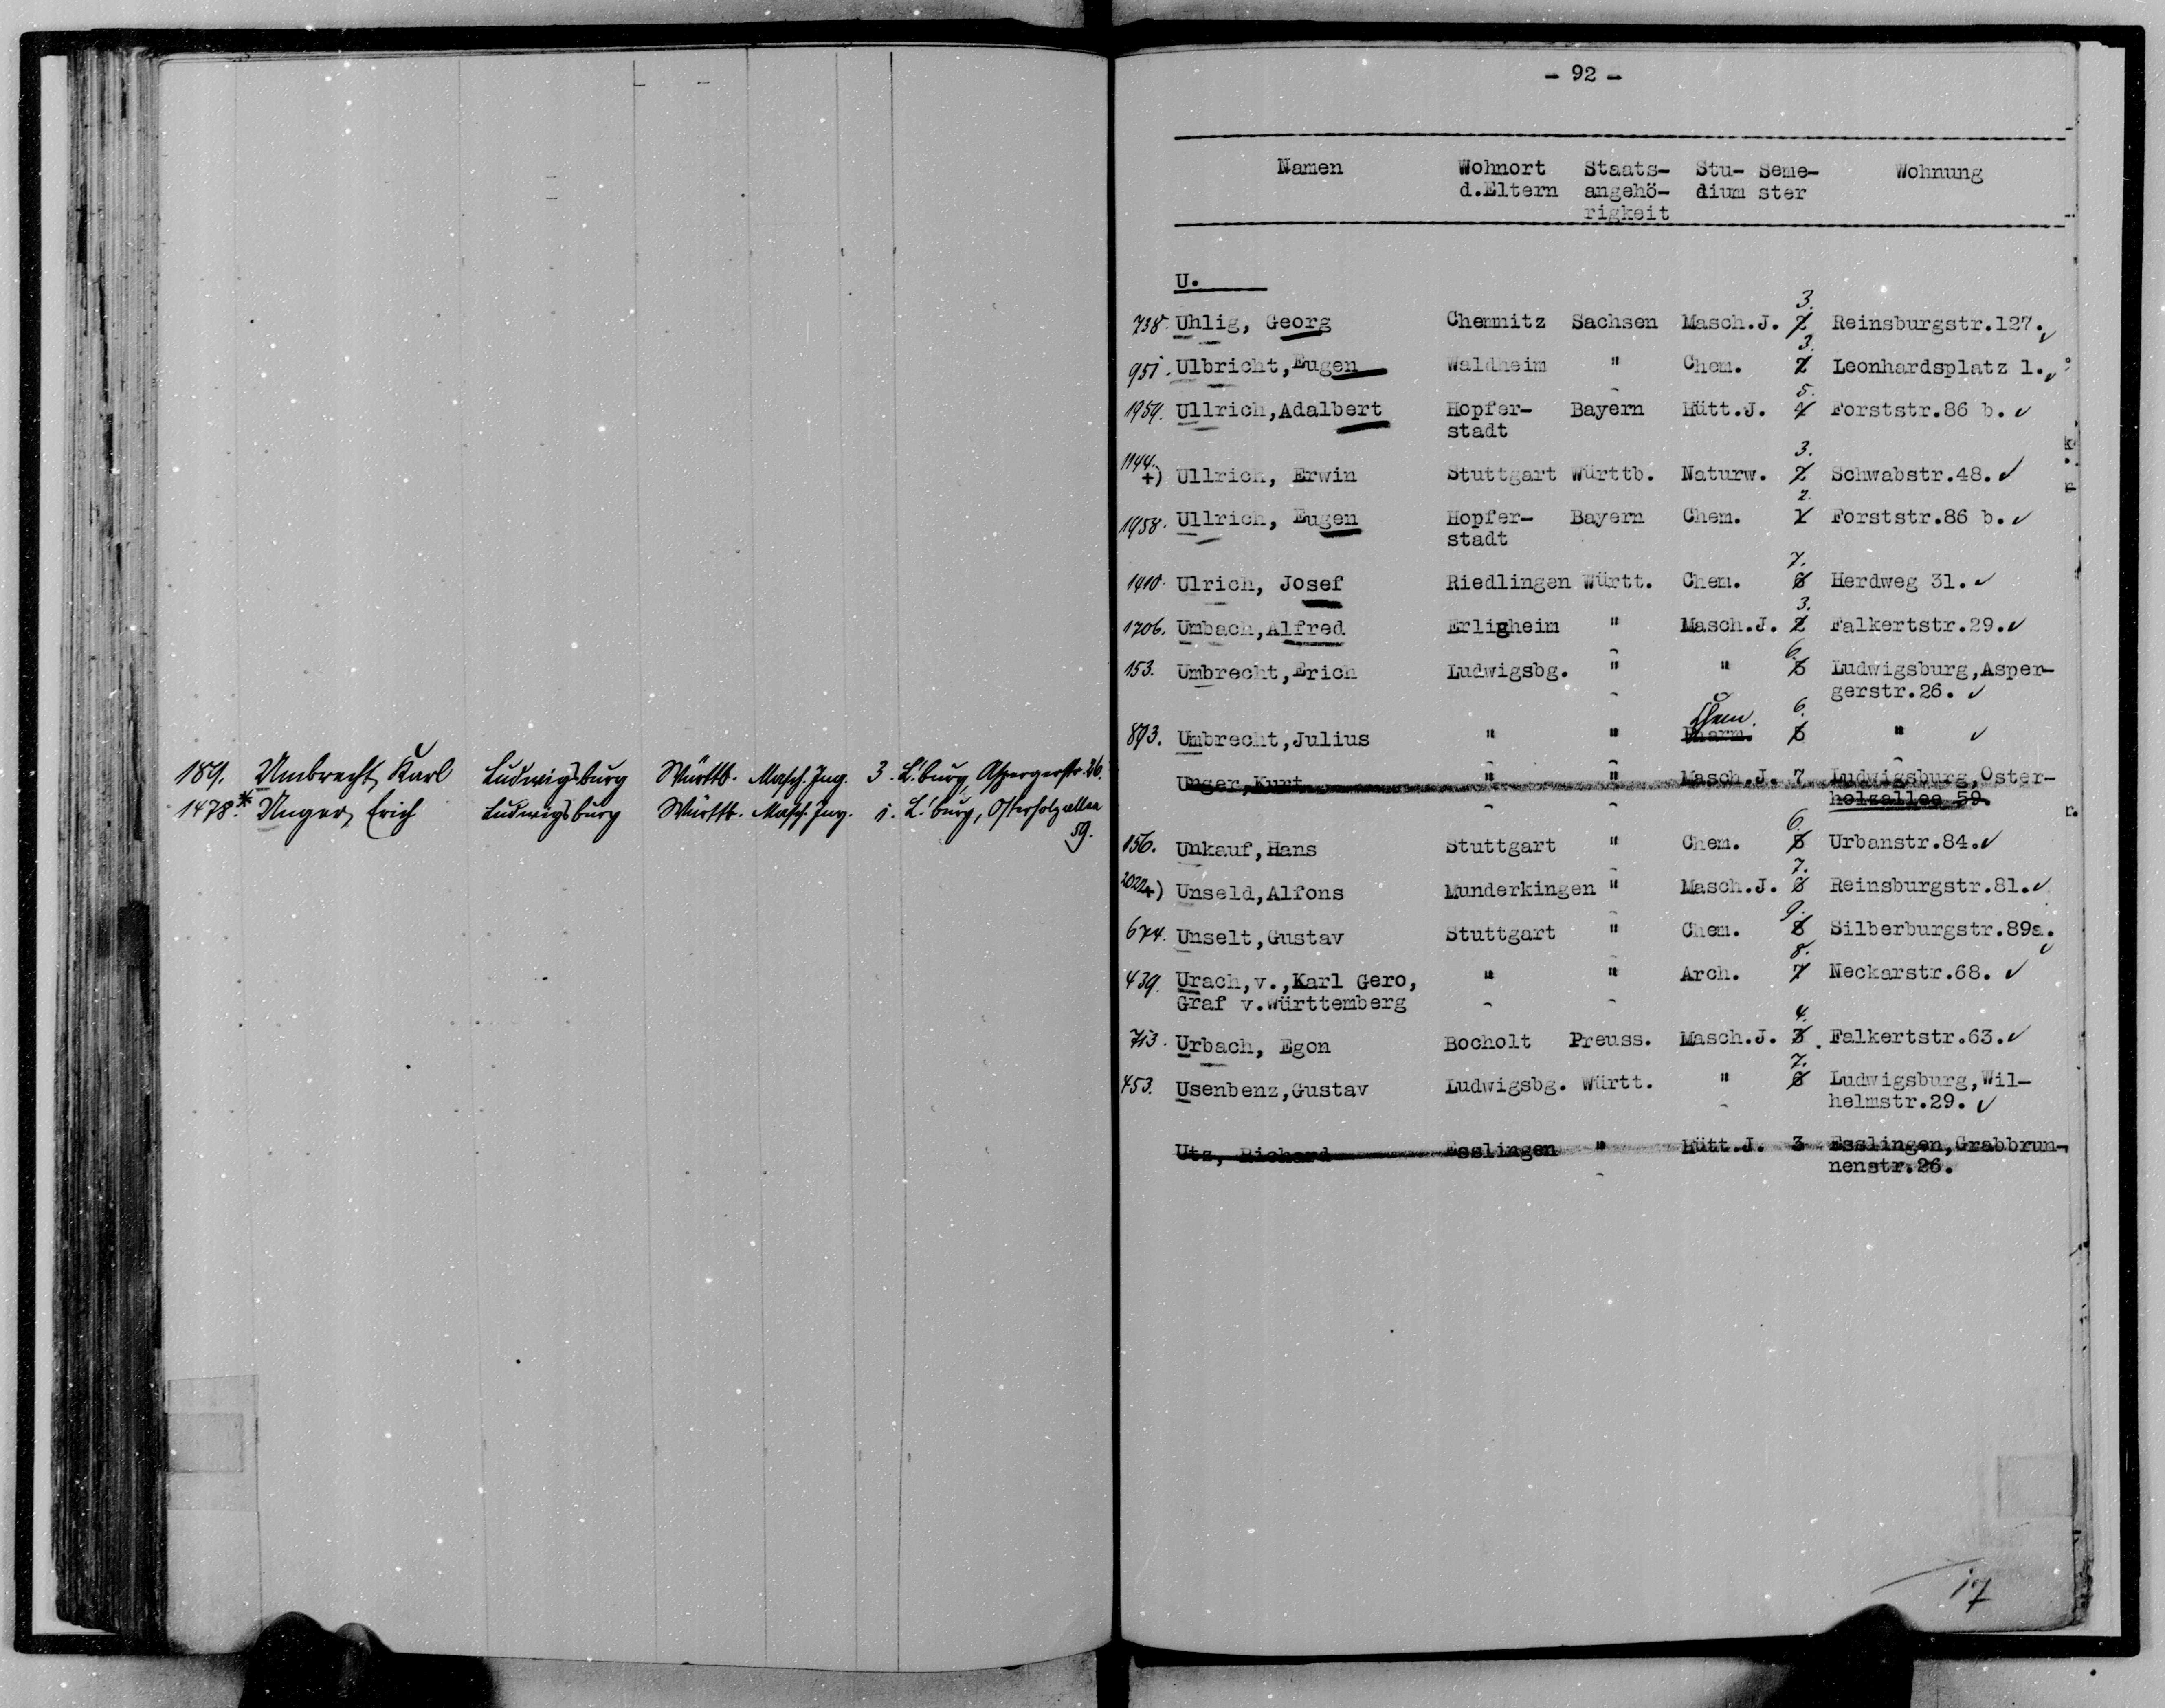 189. Umbrecht, Karl Ludwigsburg Württb. Masch. Ing. 3. L'burg, Aspergerstr. 26.
1478.* Unger, Erich Ludwigsburg Württb. Masch. Ing. 1. L'burg, Osterholzallee
59.
- 92 -
Namen Wohnort Staats- Stu- Seme- Wohnung
d.Eltern angehö- dium ster
rigkeit
U.
3.
738. Uhlig, Georg Chemnitz Sachsen Masch.J. 2 Reinsburgstr.127.
3.
951. Ulbricht,Eugen Waldheim " Chem. 2 Leonhardsplatz 1.
5.
1959. Ullrich,Adalbert Hopfer- Bayern Hütt.J. 4 Forststr.86 b.
stadt
1144. 3.
+) Ullrich, Erwin Stuttgart Württb. Naturw. 2 Schwabstr.48.
2.
1958. Ullrich, Eugen Hopfer- Bayern Chem. 1 Forststr.86 b.
stadt
7.
1410. Ulrich, Josef Riedlingen Württ. Chem. 6 Herdweg 31.
3.
1706. Umbach,Alfred Erligheim " Masch.J. 2 Falkertstr.29.
6.
153. Umbrecht,Erich Ludwigsbg. " " 5 Ludwigsburg,Asper-
gerstr.26.
Chem. 6.
893. Umbrecht,Julius " " Pharm. 5 "
Unger,Kurt " " Masch.J. 7 Ludwigsburg,Oster-
holzallee 59.
6.
156. Unkauf,Hans Stuttgart " Chem. 5 Urbanstr.84.
7.
2022+) Unseld,Alfons Munderkingen " Masch.J. 6 Reinsburgstr.81.
9.
674. Unselt,Gustav Stuttgart " Chem. 8 Silberburgstr.89a.
8.
439. Urach,v.,Karl Gero, " " Arch. 7 Neckarstr.68.
Graf v.Württemberg
4.
713. Urbach, Egon Bocholt Preuss. Masch.J. 3 Falkertstr.63.
7.
453. Usenbenz,Gustav Ludwigsbg. Württ. " 6 Ludwigsburg,Wil-
helmstr.29.
Utz, Richard Esslingen " Hütt.J. 3 Esslingen,Grabbrun-
nenstr.26.
17